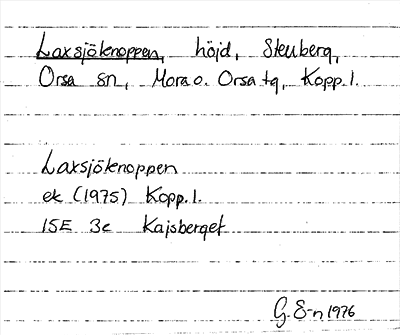 Laxsjöknoppen, höjd, Stenberg,
Orsa sn, Mora o. Orsa tg, Kopp. l.
Laxsjöknoppen
ek (1975) Kopp. l.
15E 3c Kajsberget
G. S-n 1976